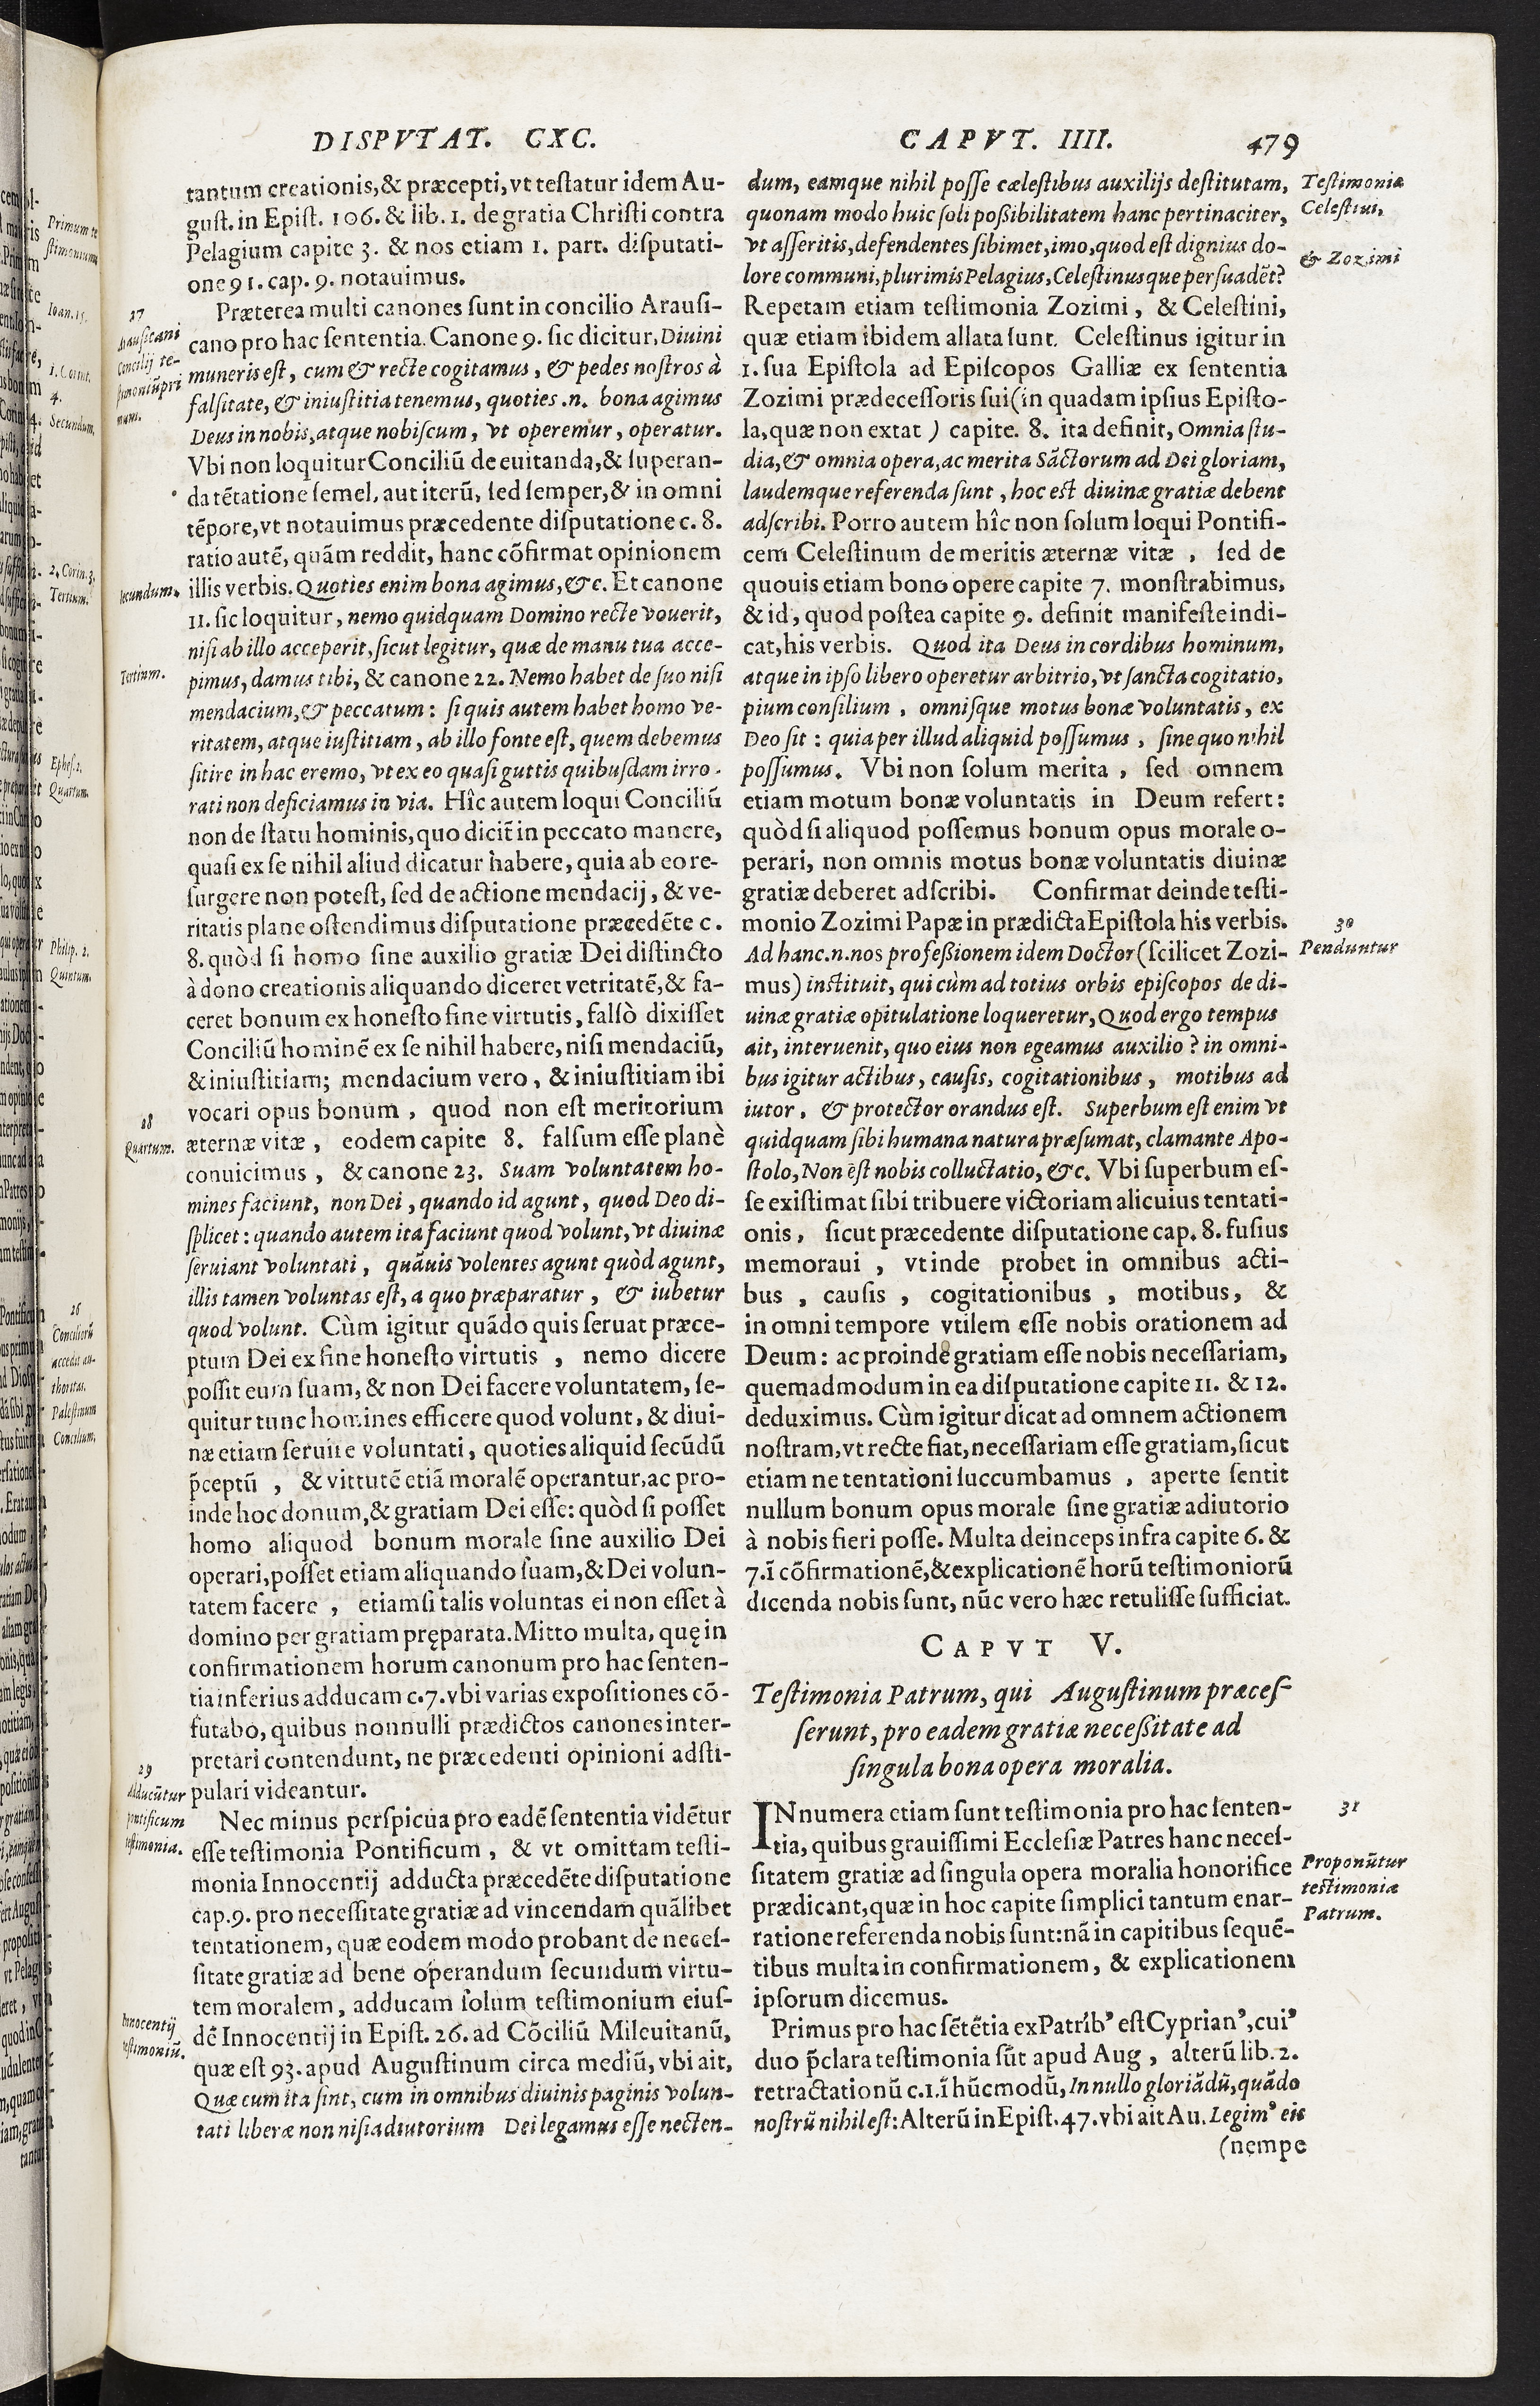 DISPVTAT. CXC.
CAPVT. IIII. 479
tantum creationis, & præcepti, vt testatur idem Au-
gust. in Epist. 106. & lib. 1. de gratia Christi contra
Pelagium capite 3. & nos etiam 1. part. disputati-
one 91. cap. 9. notauimus.
27
Arausicani
Concilij te-
stimoniũ pri
mum.
Præterea multi canones sunt in concilio Arausi-
cano pro hac sententia. Canone 9. sic dicitur, Diuini
muneris est, cum & recte cogitamus, & pedes nostros à
falsitate, & iniustitia tenemus, quoties .n. bona agimus
Deus in nobis, atque nobiscum, vt operemur, operatur.
Vbi non loquitur Conciliũ de euitanda, & superan-
da tẽtatione semel, aut iterũ, sed semper, & in omni
tẽpore, vt notauimus præcedente disputatione c. 8.
ratio autẽ, quãm reddit, hanc cõfirmat opinionem
secundum.
illis verbis. Quoties enim bona agimus, &c. Et canone
11. sic loquitur, nemo quidquam Domino recte vouerit,
nisi ab illo acceperit, sicut legitur, quæ de manu tua acce-
Tertium.
pimus, damus tibi, & canone 22. Nemo habet de suo nisi
mendacium, & peccatum: si quis autem habet homo ve-
ritatem, atque iustitiam, ab illo fonte est, quem debemus
sitire in hac eremo, vt ex eo quasi guttis quibusdam irro-
rati non deficiamus in via. Hîc autem loqui Conciliũ
non de statu hominis, quo dicit̃ in peccato manere,
quasi ex se nihil aliud dicatur habere, quia ab eo re-
surgere non potest, sed de actione mendacij, & ve-
ritatis plane ostendimus disputatione præcedẽte c.
8. quòd si homo sine auxilio gratiæ Dei distincto
à dono creationis aliquando diceret vetritatẽ, & fa-
ceret bonum ex honesto fine virtutis, falsò dixisset
Conciliũ hominẽ ex se nihil habere, nisi mendaciũ,
& iniustitiam; mendacium vero, & iniustitiam ibi
vocari opus bonum, quod non est meritorium
28
Quartum.
æternæ vitæ, eodem capite 8. falsum esse planè
conuicimus, & canone 23. Suam voluntatem ho-
mines faciunt, non Dei, quando id agunt, quod Deo di-
splicet: quando autem ita faciunt quod volunt, vt diuinæ
seruiant voluntati, quãuis volentes agunt quòd agunt,
illis tamen voluntas est, a quo præparatur, & iubetur
quod volunt. Cùm igitur quãdo quis seruat præce-
ptum Dei ex fine honesto virtutis, nemo dicere
possit eum suam, & non Dei facere voluntatem, se-
quitur tunc homines efficere quod volunt, & diui-
næ etiam seruire voluntati, quoties aliquid secũdũ
p̃ceptũ, & vittutẽ etiã moralẽ operantur, ac pro-
inde hoc donum, & gratiam Dei esse: quòd si posset
homo aliquod bonum morale sine auxilio Dei
operari, posset etiam aliquando suam, & Dei volun-
tatem facere, etiamsi talis voluntas ei non esset à
domino per gratiam pręparata. Mitto multa, quę in
confirmationem horum canonum pro hac senten-
tia inferius adducam c. 7. vbi varias expositiones cõ-
futabo, quibus nonnulli prædictos canones inter-
pretari contendunt, ne præcedenti opinioni adsti-
pulari videantur.
29
Adducũtur
pontificum
testimonia.
Nec minus perspicua pro eadẽ sententia vidẽtur
esse testimonia Pontificum, & vt omittam testi-
monia Innocentij adducta præcedẽte disputatione
cap. 9. pro necessitate gratiæ ad vincendam quãlibet
tentationem, quæ eodem modo probant de neces-
sitate gratiæ ad bene operandum secundum virtu-
tem moralem, adducam solum testimonium eius-
Innocentij
testimoniũ.
dẽ Innocentij in Epist. 26. ad Cõciliũ Mileuitanũ,
quæ est 93. apud Augustinum circa mediũ, vbi ait,
Quæ cum ita sint, cum in omnibus diuinis paginis volun-
tati liberæ non nisi adiutorium Dei legamus esse necten-
dum, eamque nihil posse cælestibus auxilijs destitutam,
quonam modo huic soli poßibilitatem hanc pertinaciter,
vt asseritis, defendentes sibimet, imo, quod est dignius do-
lore communi, plurimis Pelagius, Celestinusque persuadẽt?
Testimonia
Celestini,
& Zozimi
Repetam etiam testimonia Zozimi, & Celestini,
quæ etiam ibidem allata sunt. Celestinus igitur in
1. sua Epistola ad Episcopos Galliæ ex sententia
Zozimi prædecessoris sui (in quadam ipsius Episto-
la, quæ non extat) capite. 8. ita definit, Omnia stu-
dia, & omnia opera, ac merita Sãctorum ad Dei gloriam,
laudemque referenda sunt, hoc est diuinæ gratiæ debent
adscribi. Porro autem hîc non solum loqui Pontifi-
cem Celestinum de meritis æternæ vitæ, sed de
quouis etiam bono opere capite 7. monstrabimus,
& id, quod postea capite 9. definit manifeste indi-
cat, his verbis. Quod ita Deus in cordibus hominum,
atque in ipso libero operetur arbitrio, vt sancta cogitatio,
pium consilium, omnisque motus bonæ voluntatis, ex
Deo sit: quia per illud aliquid possumus, sine quo nihil
possumus. Vbi non solum merita, sed omnem
etiam motum bonæ voluntatis in Deum refert:
quòd si aliquod possemus bonum opus morale o-
perari, non omnis motus bonæ voluntatis diuinæ
gratiæ deberet adscribi. Confirmat deinde testi-
monio Zozimi Papæ in prædicta Epistola his verbis.
30
Penduntur
Ad hanc .n. nos profeßionem idem Doctor (scilicet Zozi-
mus) instituit, qui cùm ad totius orbis episcopos de di-
uinæ gratiæ opitulatione loqueretur, Quod ergo tempus
ait, interuenit, quo eius non egeamus auxilio? in omni-
bus igitur actibus, causis, cogitationibus, motibus ad
iutor, & protector orandus est. Superbum est enim vt
quidquam sibi humana natura præsumat, clamante Apo-
stolo, Non est nobis colluctatio, &c. Vbi superbum es-
se existimat sibi tribuere victoriam alicuius tentati-
onis, sicut præcedente disputatione cap. 8. fusius
memoraui, vt inde probet in omnibus acti-
bus, causis, cogitationibus, motibus, &
in omni tempore vtilem esse nobis orationem ad
Deum: ac proinde gratiam esse nobis necessariam,
quemadmodum in ea disputatione capite 11. & 12.
deduximus. Cùm igitur dicat ad omnem actionem
nostram, vt recte fiat, necessariam esse gratiam, sicut
etiam ne tentationi succumbamus, aperte sentit
nullum bonum opus morale sine gratiæ adiutorio
à nobis fieri posse. Multa deinceps infra capite 6. &
7. ĩ cõfirmationẽ, & explicationẽ horũ testimoniorũ
dicenda nobis sunt, nũc vero hæc retulisse sufficiat.
CAPVT V.
Testimonia Patrum, qui Augustinum præces-
serunt, pro eadem gratiæ neceßitate ad
singula bona opera moralia.
31
INnumera etiam sunt testimonia pro hac senten-
tia, quibus grauissimi Ecclesiæ Patres hanc neces-
Proponũtur
testimonia
Patrum.
sitatem gratiæ ad singula opera moralia honorifice
prædicant, quæ in hoc capite simplici tantum enar-
ratione referenda nobis sunt: nã in capitibus sequẽ-
tibus multa in confirmationem, & explicationem
ipsorum dicemus.
Primus pro hac sẽtẽtia ex Patrib' est Cyprian', cui'
duo p̃clara testimonia sũt apud Aug, alterũ lib. 2.
retractationũ c. 1. ĩ hũcmodũ, In nullo gloriãdũ, quãdo
nostrũ nihil est: Alterũ in Epist. 47. vbi ait Au. Legim' eis
(nempe